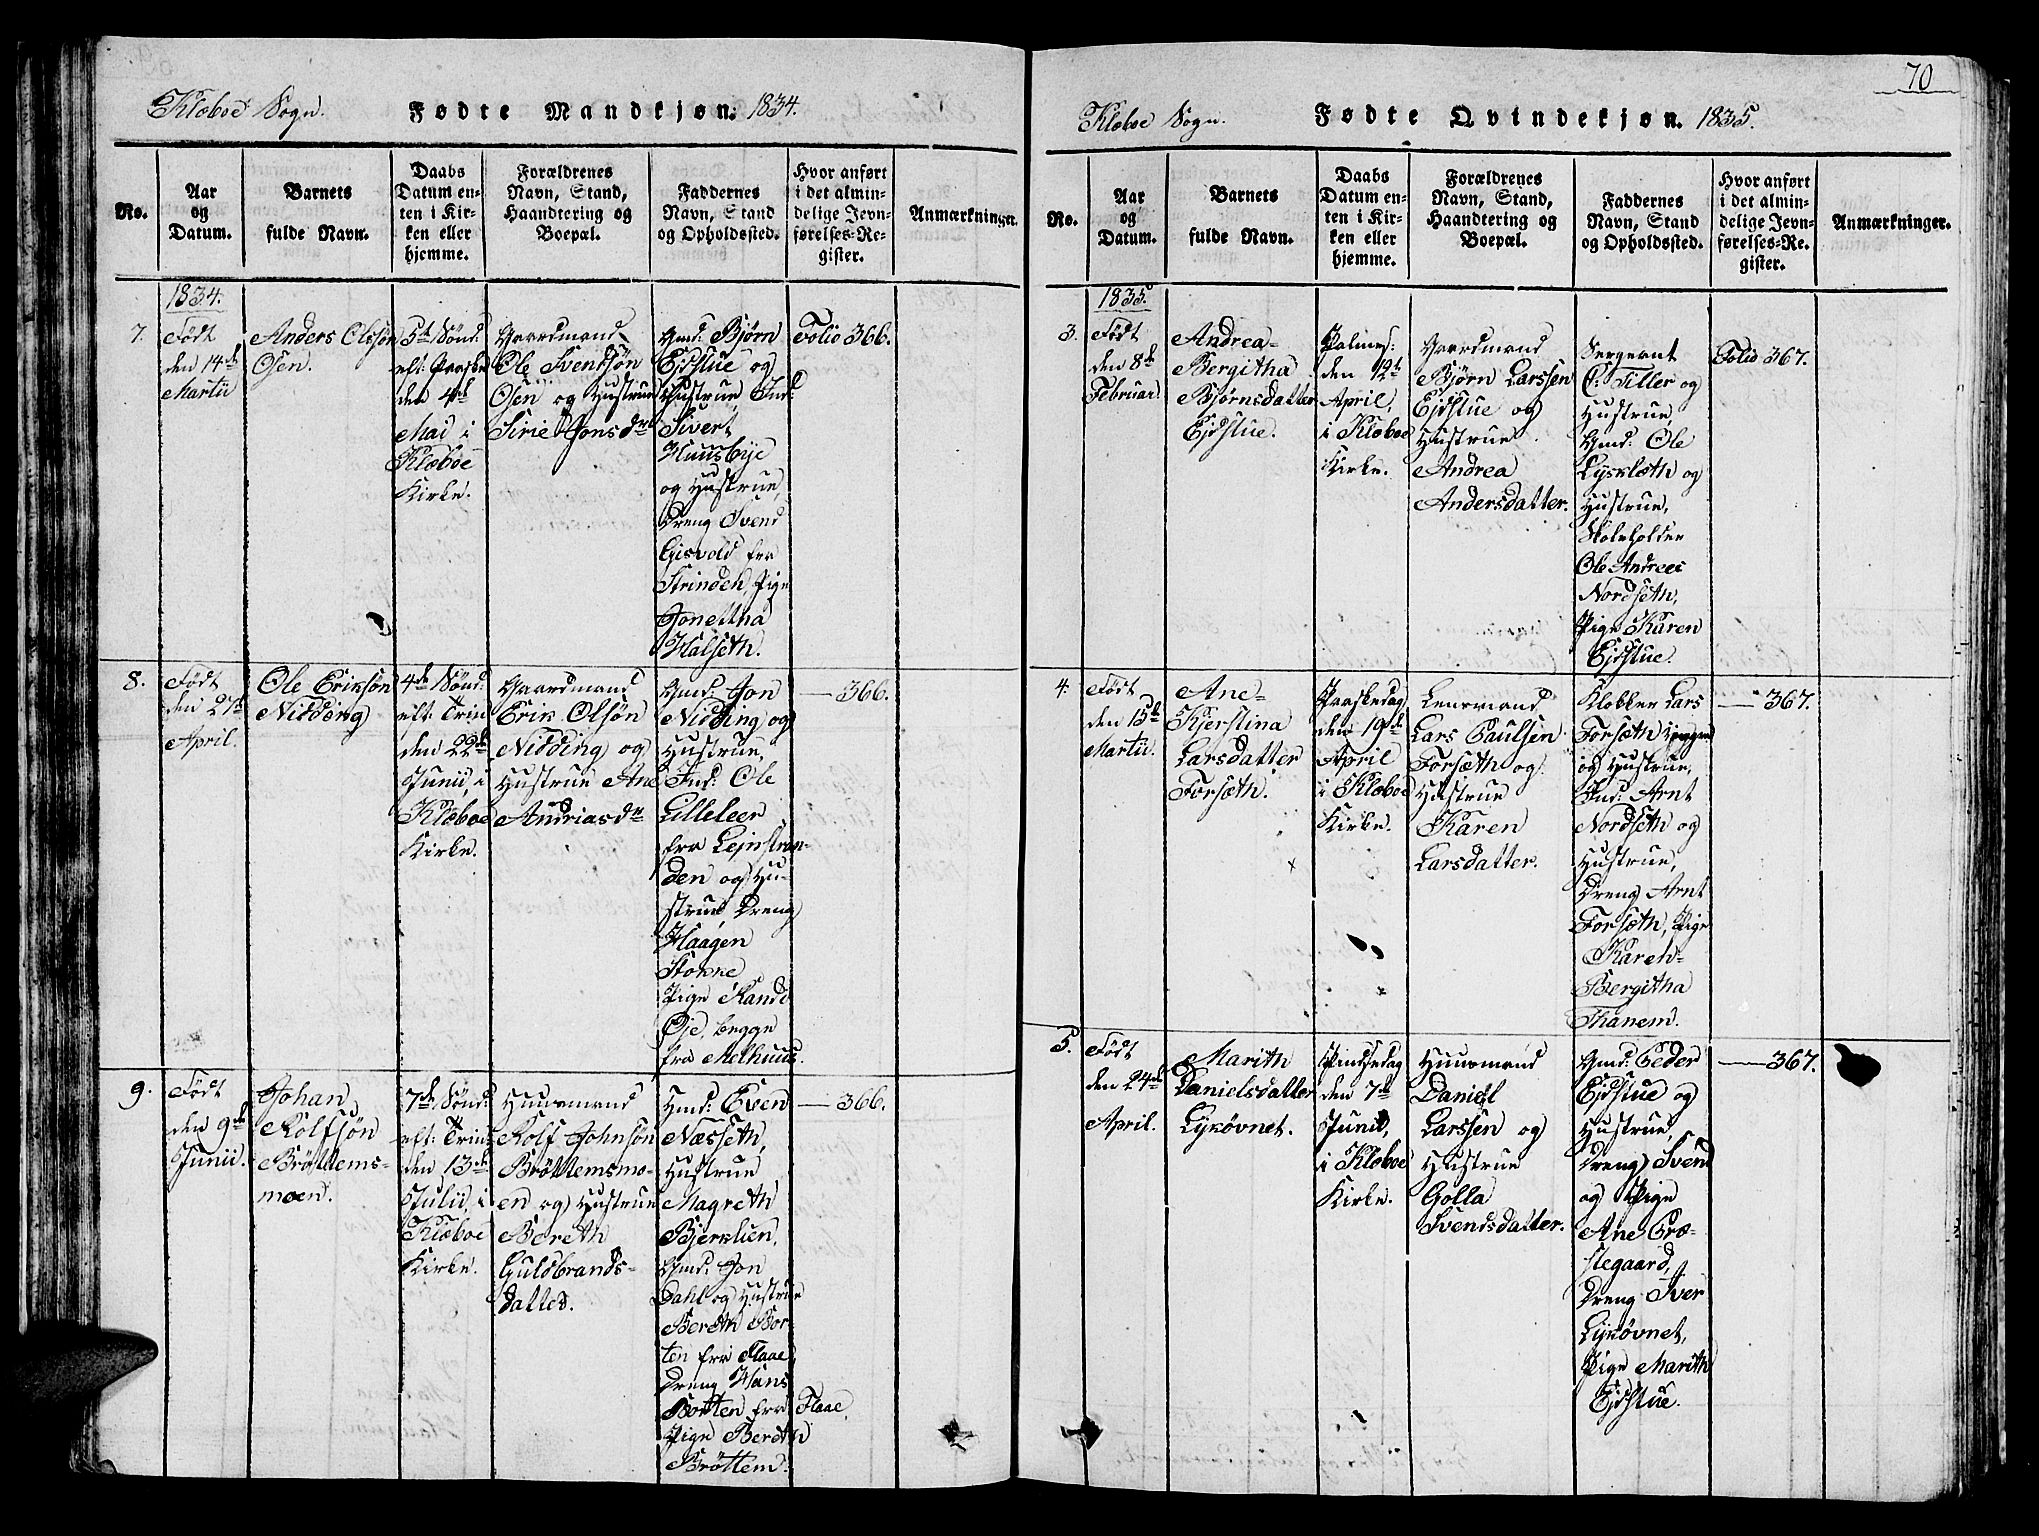 70
Klæboe Sogn. Fødte Mandkjøn. 1834.
No.
Aar
og
Datum.
Barnets
fulde Navn.
Daabs
Datum en-
ten i Kir-
ken eller
hjemme.
Forældrenes
Navn, Stand,
Haandtering og
Boepæl.
Faddernes
Navn, Stand
og Opholdssted.
Hvor anført
i det almin-
delige Jevn-
førelses-Re-
gister.
Anmærkninger.
1834.
7.
Födt
den 14de
Martii
Anders Olssön
Osen.
5te Sönd:
eft: Paaske
den 4de
Mai i
Klæboe
Kirke.
Gaardmand
Ole Svendsön
Osen og Hustrue
Sirie Jonsdr
Gmd: Björn
Ejdstue og
Hustrue, Ind:
Sivert
Huusbye
og Hustrue,
Dreng Svend
Gisvold fra
Strinden, Pige
Jonettha
Halseth.
Folio 366.
8.
Födt
den 27de
April.
Ole Eriksön
Nidding
4de Sönd:
eft: Trin:
den 22de
Junii, i
Klæboe
Kirke.
Gaardmand
Erik Olsön
Nidding og
Hustrue Ane
Andriasdr
Gmd: Jon
Nidding og
Hustrue,
Ind: Ole
Lilleleer
fra Lejnstran-
den og Hu-
strue, Dreng
Haagen
Storne
Pige Randi
Öje, begge
fra Melhuus.
— 366.
9.
Födt
den 9de
Junii.
Johan
Rolfsön
Bröttems-
moen.
7de Sönd:
eft: Trin:
den 13de
Julii, i
Klæboe
Kirke.
Huusmand
Rolf Johnsön
Bröttemsmo-
en og Hustrue
Bereth
Guldbrands-
datter.
Hmd: Even
Næsseth,
Hustrue
Magreth
Bjerklien,
Gmd: Jon
Dahl og Hustrue
Bereth Bor-
ten fra Flaae,
Dreng Hans
Borten fra Flaae,
Pige Bereth
Bröttem.
— 366.
Klæboe Sogn. Fødte Qvindekjøn. 1835.
No.
Aar
og
Datum.
Barnets
fulde Navn.
Daabs
Datum en-
ten i Kir-
ken eller
hjemme.
Forældrenes
Navn, Stand,
Haandtering og
Boepæl.
Faddernes
Navn, Stand
og Opholdssted.
Hvor anført
i det almin-
delige Jevn-
førelses-Re-
gister.
Anmærkninger.
1835.
3.
Födt
den 8de
Februar.
Andrea-
Bergitha
Björnsdatter
Ejdstue.
Palmes:
den 12te
April,
i Klæboe
Kirke.
Gaardmand
Björn Larssen
Ejdstue og
Hustrue
Andrea
Andersdatter.
Sergeant
O: Tiller og
Hustrue,
Gmd: Ole
Lysklæth og
Hustrue,
Skoleholder
Ole Andreas
Nordseth,
Pige Karen
Ejdstue.
Folio 367.
4.
Födt
den 15de
Martii.
Ane-
Kjerstina
Larsdatter
Forsæth.
Paaskedag
den 19de
April
i Klæboe
Kirke.
Lensmand
Lars Paulsen
Forsæth og
Hustrue
Karen
Larsdatter.
Klokker Lars
Forsæth
og Hustrue,
Ind: Arnt
Nordseth og
Hustrue,
Dreng Arnt
Forsæth, Pige
Karen-
Bergitha
Thanem.
— 367.
5.
Födt
den 24de
April.
Marith
Danielsdatter
Lykövnet.
Pindsedag
den 7de
Junii,
i Klæboe
Kirke.
Huusmand
Daniel
Larssen og
Hustrue
Golla
Svendsdatter.
Gmd: Peder
Ejdstue og
Hustrue,
Dreng Svend
og Pige
Ane Præ-
stegaard,
Dreng Iver
Lykövnet,
Pige Marith
Ejdstue.
— 367.